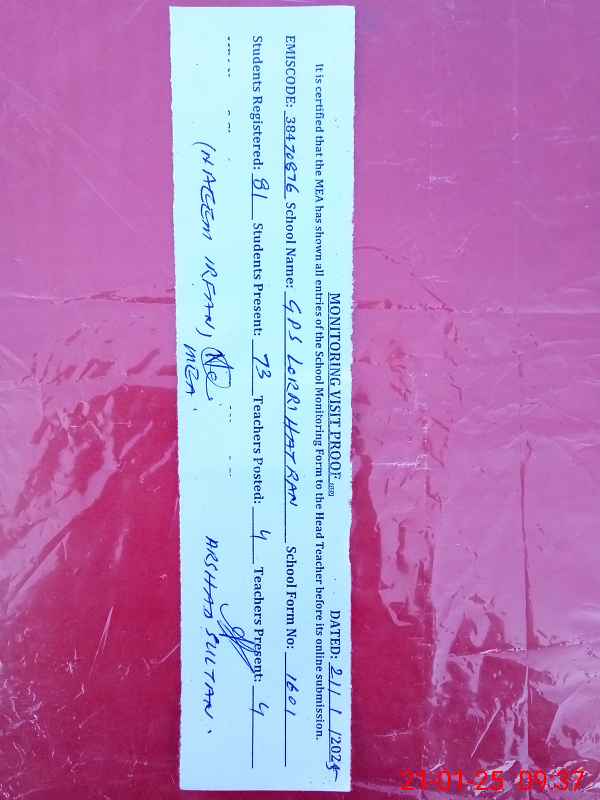 MONITORING VISIT PROOF DATED: 21/1/2024
It is certified that the MEA has shown all entries of the School Monitoring Form to the Head Teacher before its online submission.
EMISCODE: 38470876 School Name: GPS LORRI HATRAN School Form No: 1601
Students Registered: 81 Students Present: 73 Teachers Posted: 4 Teachers Present: 4
(NAEEM IRFAN)
MEA.
ARSHAD SULTAN.
21-01-25 09:37